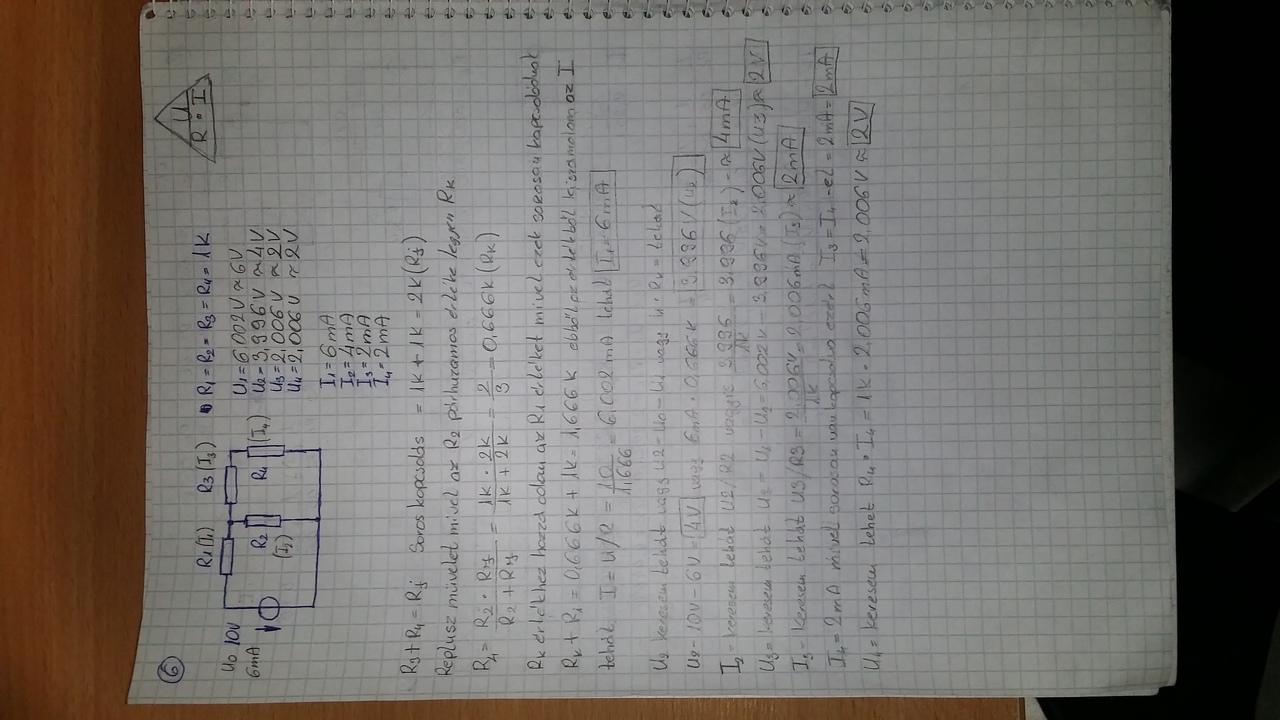 6
U
R • I
R1 (I1) R3 (I3)
U0 10V
6mA
R2 (I2) R4 (I4)
R1 = R2 = R3 = R4 = 1K
U1 = 6.002V ≈ 6V
U2 = 3,996V ≈ 4V
U3 = 2,006V ≈ 2V
U4 = 2,006V ≈ 2V
I1 = 6mA
I2 = 4mA
I3 = 2mA
I4 = 2mA
R3+R4 = Rj Soros kapcsolás = 1K+1K = 2K (Rj)
Replusz művelet mivel az R2 párhuzamos értéke legyen Rk
= R2 · Rj / R2 + Rj = 1K · 2K / 1K + 2K = 2/3 = 0,666K (Rk)
Rk értékhez hozzá adom az R1 értéket mivel ezek sorosan kapcsolódnak
Rk + R1 = 0,666K + 1K = 1,666K ebből az értékből kiszámolom az I
tehát I = U/R = 10/1,666 = 6,002mA tehát I1 = 6mA
U2 keresem tehát vagy U2 = U0 - U1 vagy · Rk = tehát
U2 = 10V - 6V = 4V vagy 6mA · 0,666K = 3,996V (U2)
I2 = keresem tehát U2/R2 vagyis 3,996/1K = 3,996 (I2) ≈ 4mA
U3 = keresem tehát U3 = U1 - U2 = 6,002V - 3,996V = 2,006V (U3) ≈ 2V
I3 = keresem tehát U3/R3 = 2,006V/1K = 2,006mA (I3) ≈ 2mA
I4 = 2mA mivel sorosan van kapcsolva ezért I3 = I4 -el = 2mA = 2mA
U4 = keresem tehát R4 • I4 = 1K · 2,006mA = 2,006V ≈ 2V